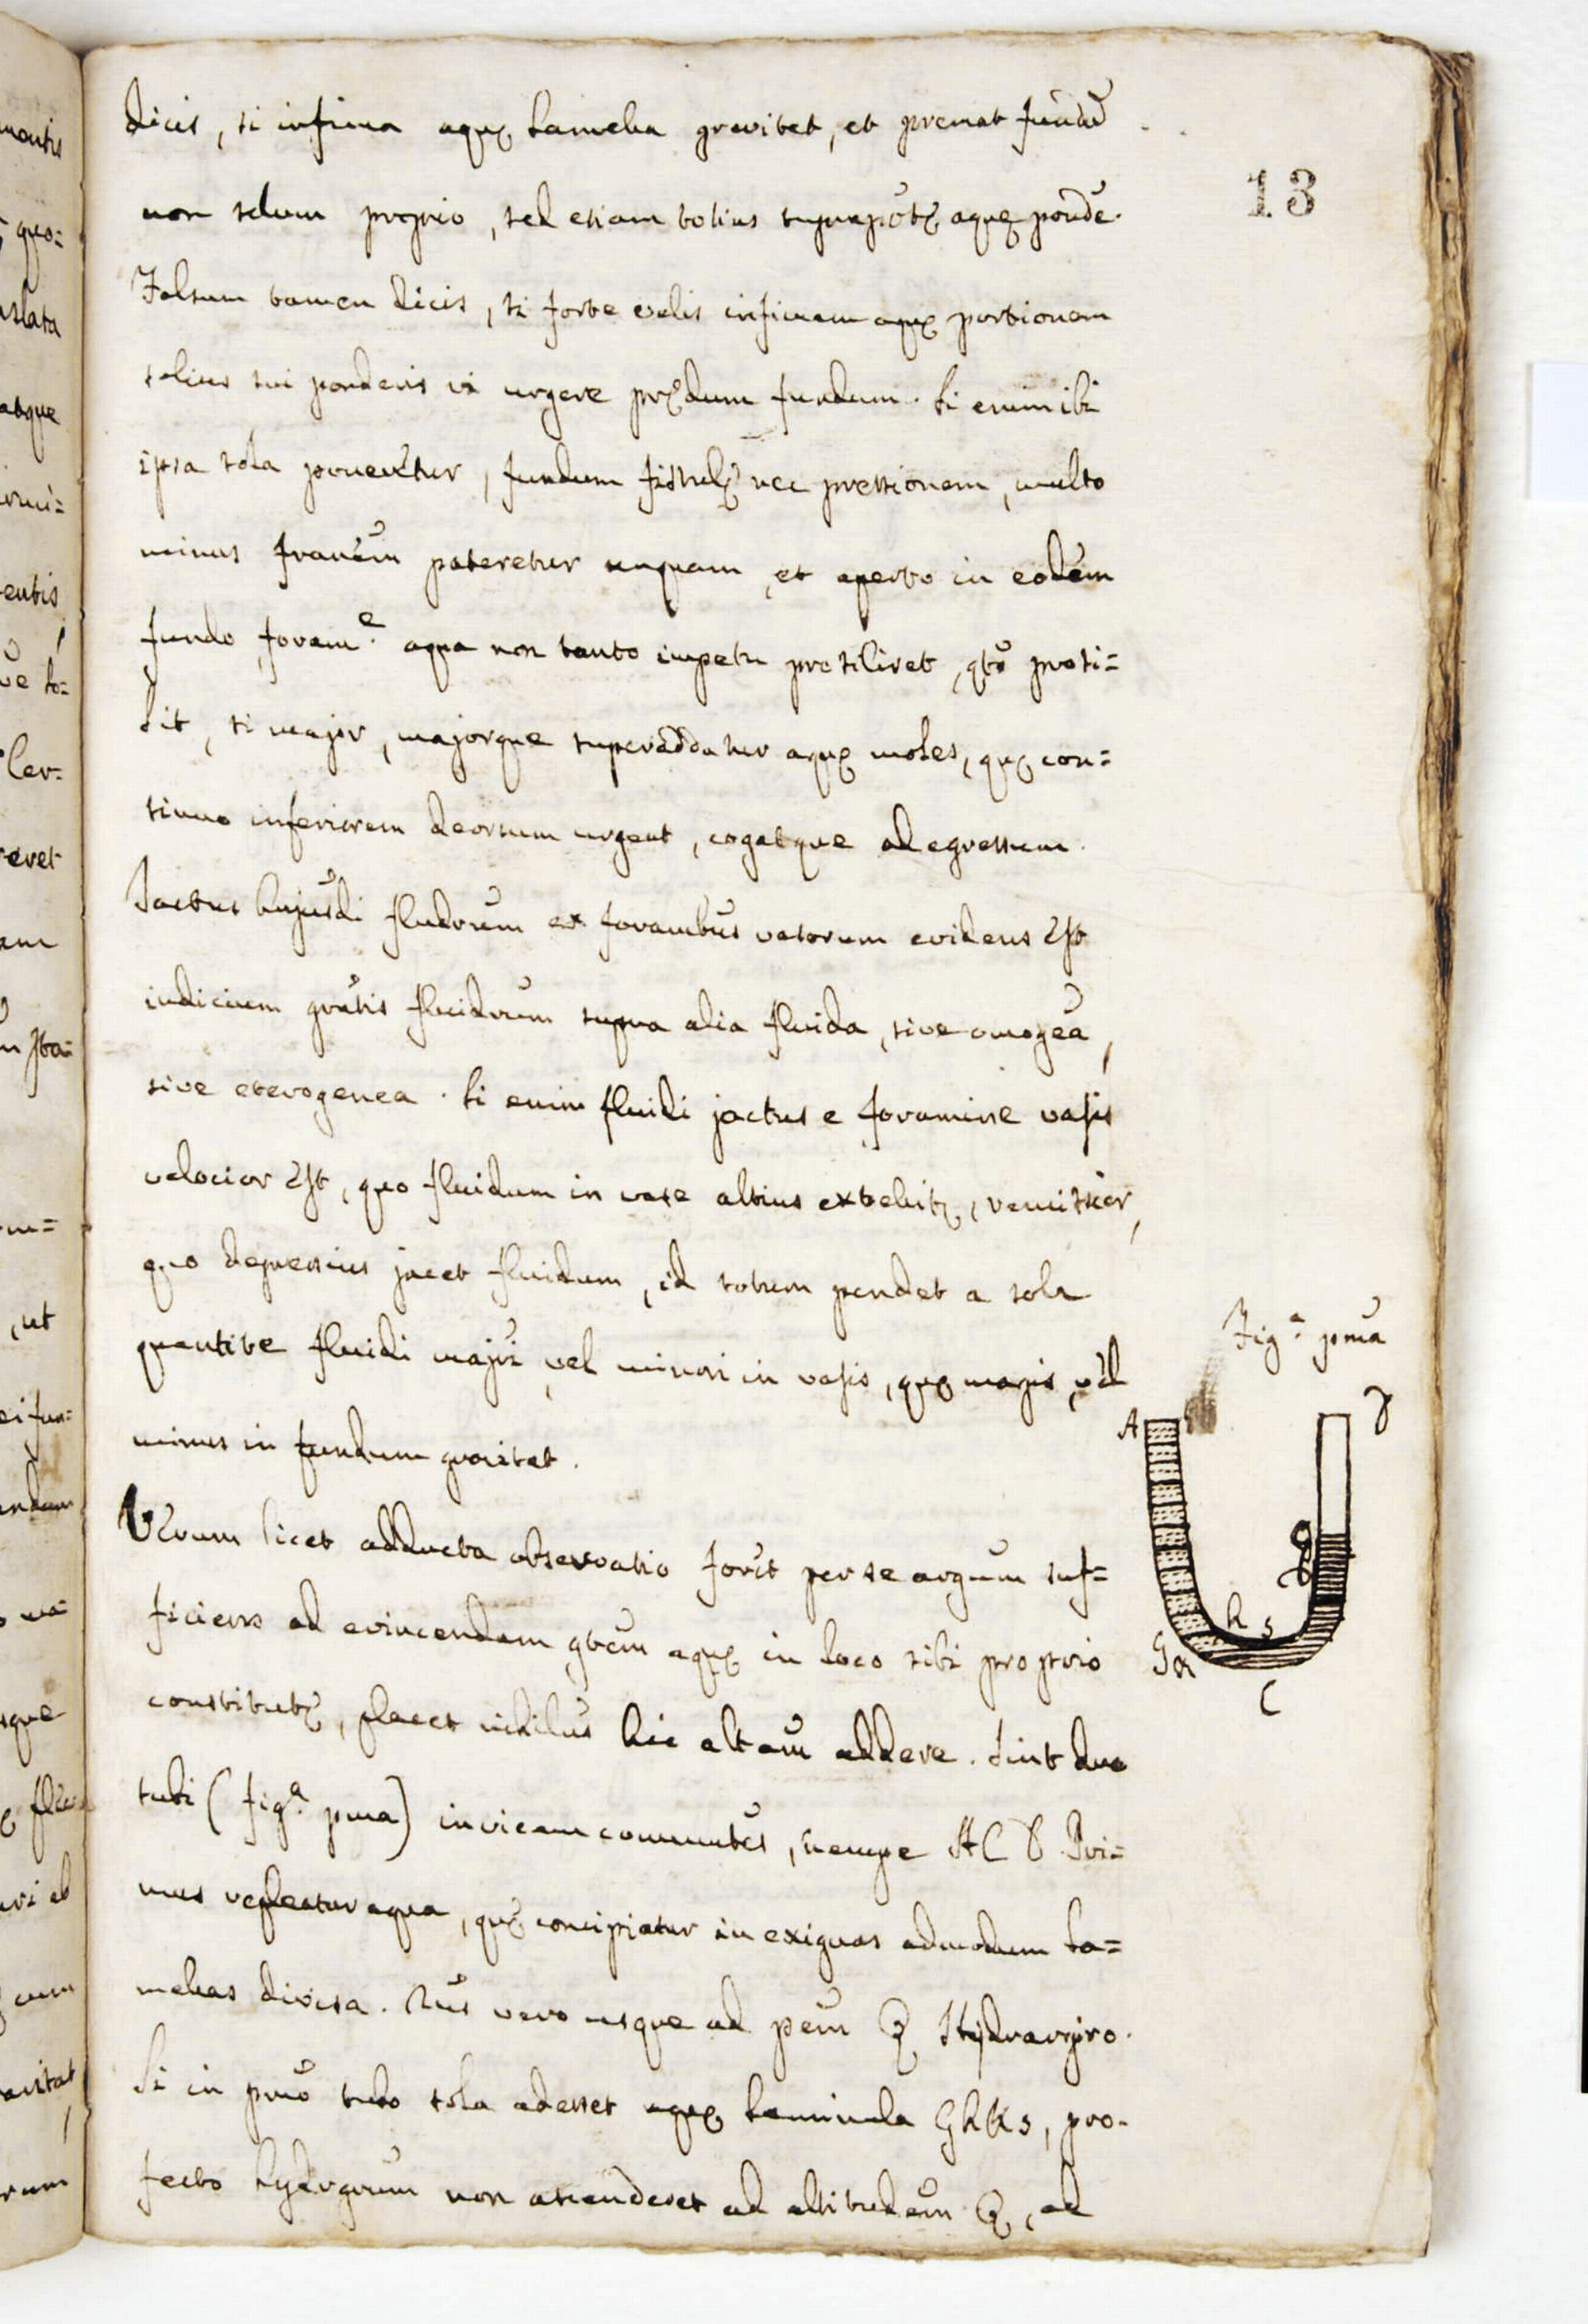 dicis, si infima aquę lamella gravitet, et premat fundū
13
non solum proprio, sed etiam totius suprapōtę aquę ponde.
Falsum tamen dicis, si forte velis infimam aquę portionem
solius sui ponderis vi urgere prędum fundum. Si enim ibi
ipsa sola poneretur, fundum fistulę nec pressionem, multo
minus pateretur unquam, et aperto in eodem
fundo foram.e aqua non tanto impetu prosiliret, qto prosi=
lit, si major, majorque superaddatur aquę moles, quę con=
tinuo inferiorem deorsum urgeat, cogatque ad egressum.
Jactus hujusdi fluidrum ex forambus vasorum evidens est
indicium grvtis fluidrum supra alia fluida, sive omogea,
sive eterogenea. Si enim fluidi jactus e foramine vasis
velocior est, quo fluidum in vase altius extolit, remissior,
quo depressius jacet fluidum, id totum pendet a sola
quantite fluidi majri vel minori in vasis, quę magis, vel
minus in fundum gravitat.
Figa. pma
A
g
h s
G
C
Verum licet adducta observatio forit per se argum suf=
ficiens ad evincendam gtem aquę in loco sibi proprio
constitutę, placet nihilus hic altam addere. Sint duo
tubi (figa. pma) invicem communtes, nempe AC Pri=
mus repleatur aqua, quę concipiatur in exiguas admodum la=
mellas divisa. vero usque ad Hydrargiro.
Si in pmo tubo sola adesset aquę laminula GhKs, pro=
fecto hydrgrum non ascenderet ad altitudem , ad